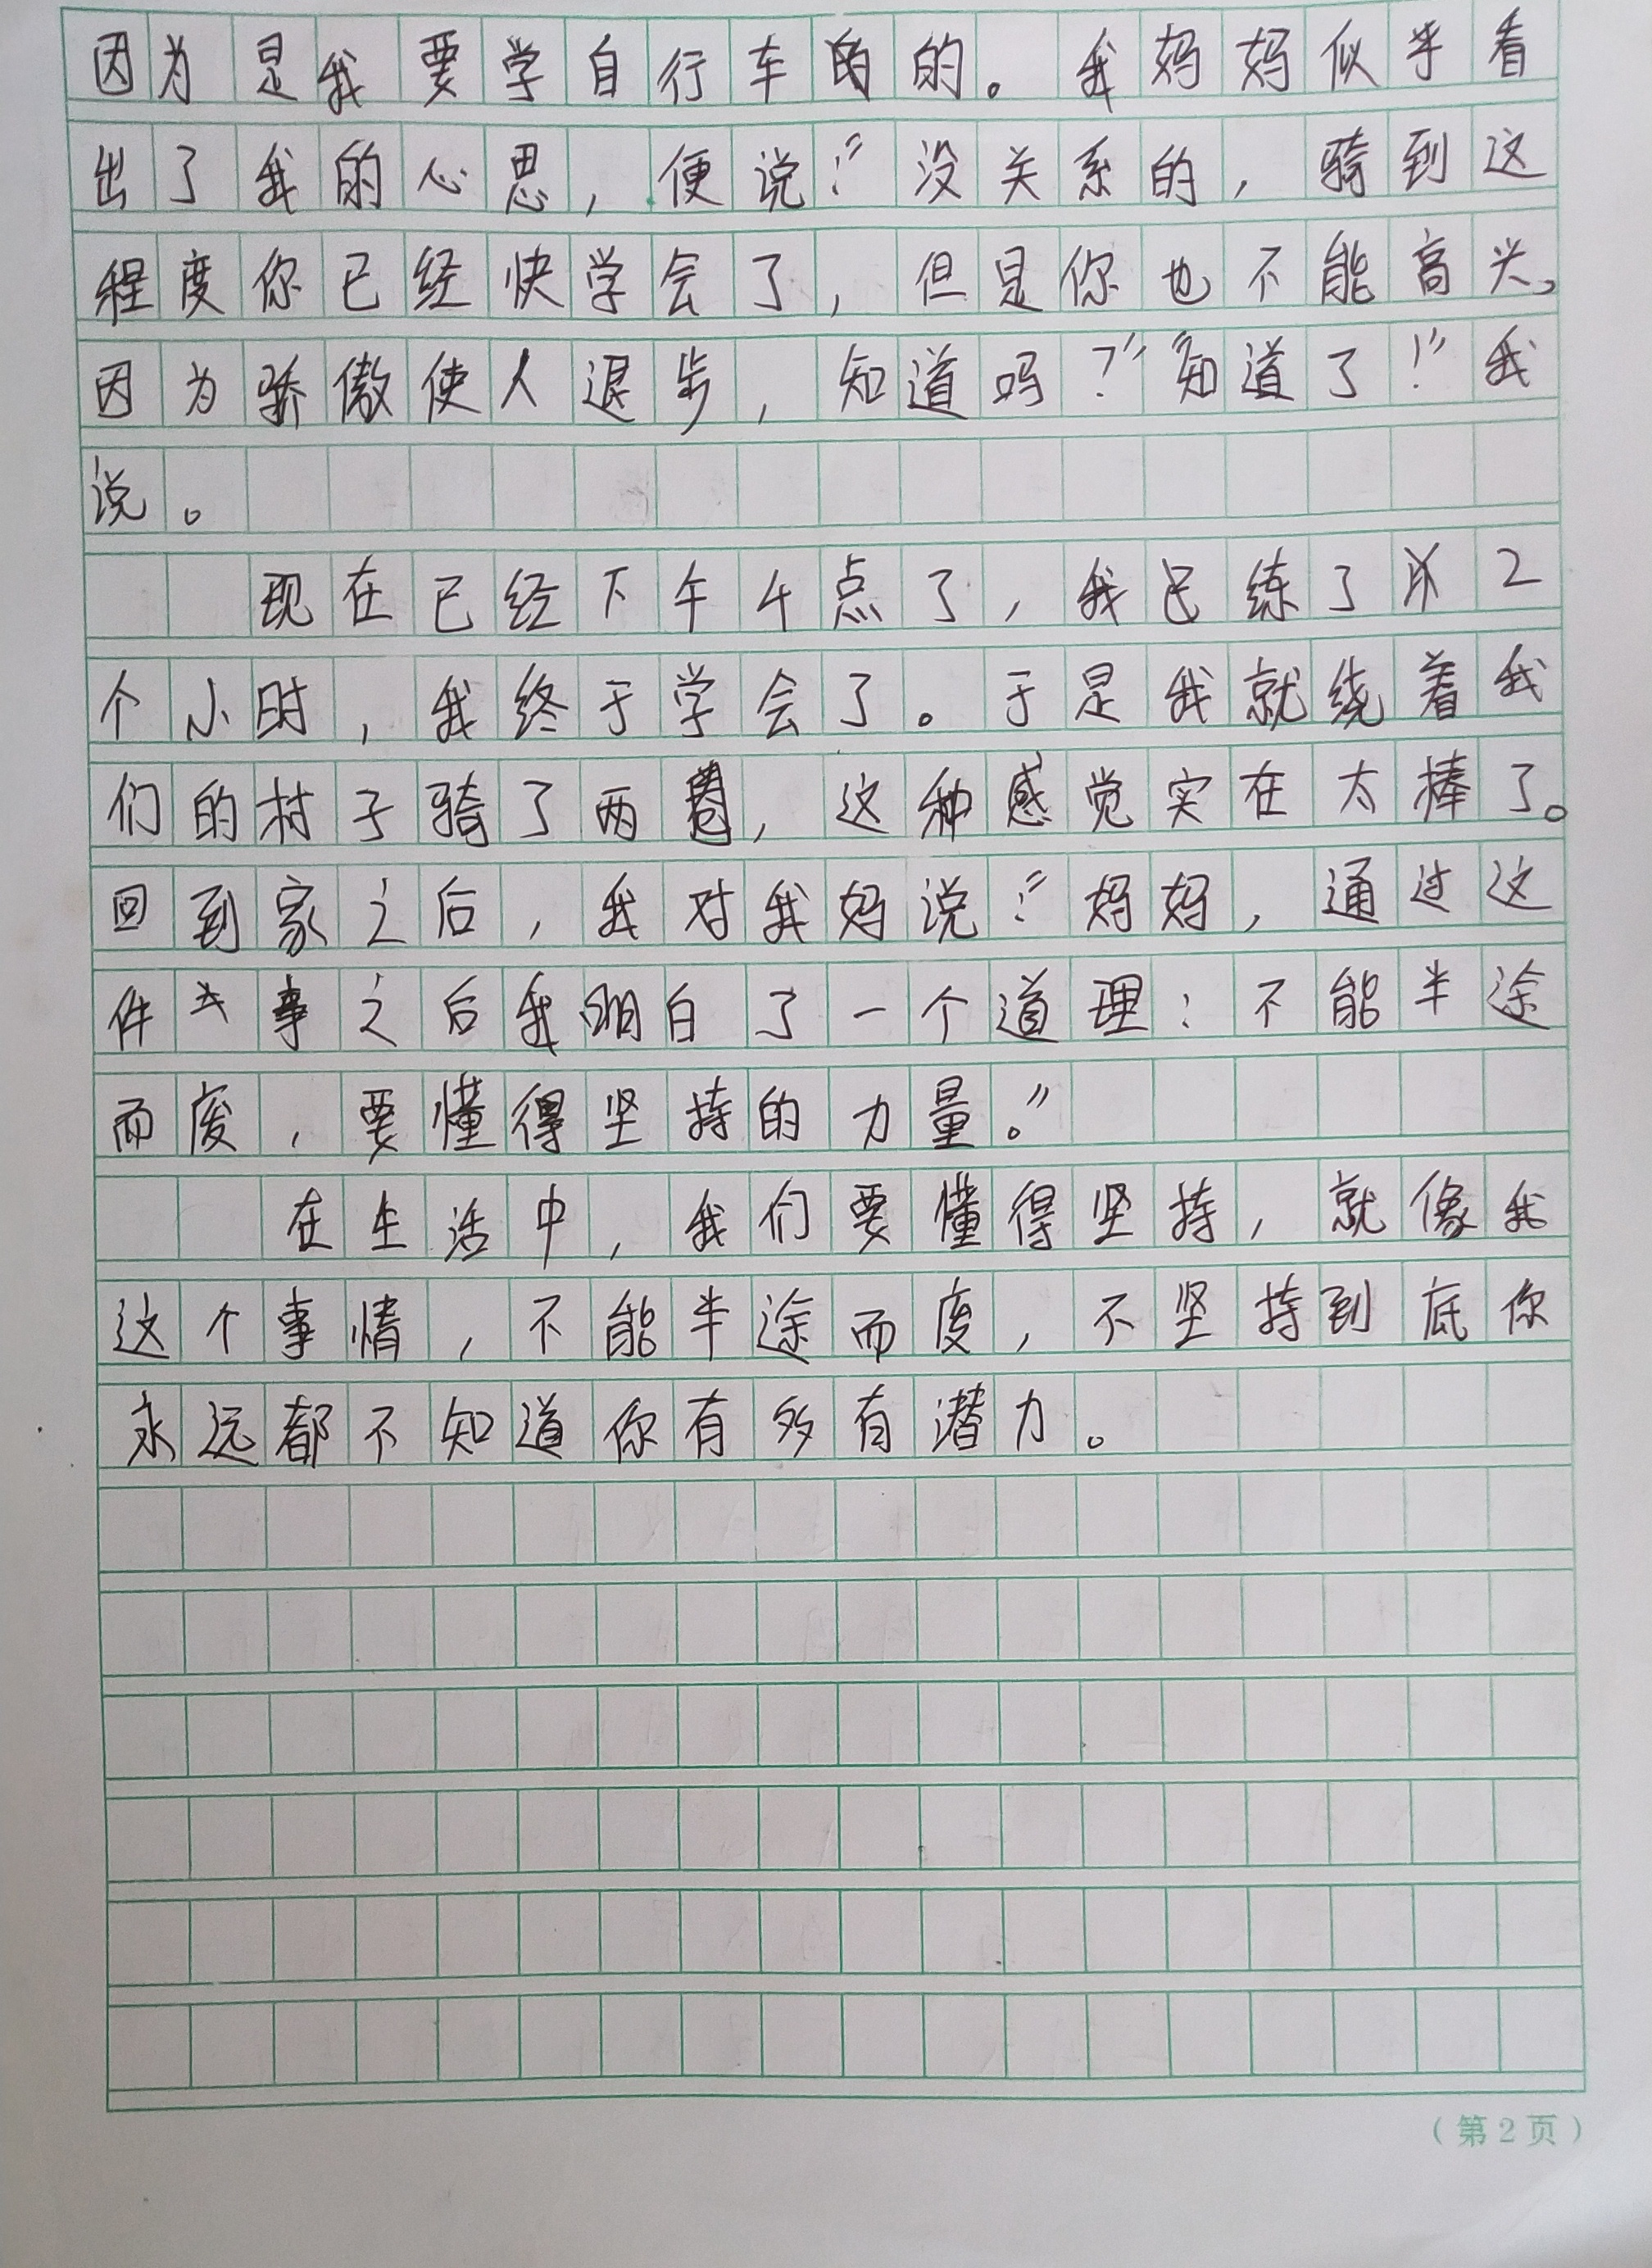 因为是我要学自行车的的。我妈妈似乎看
出了我的心思，便说：“没关系的，骑到这
程度你已经快学会了，但是你也不能高兴，
因为骄傲使人退步，知道吗？”“知道了！”我
说。
现在已经下午4点了，我已练了2
个小时，我终于学会了。于是我就绕着我
们的村子骑了两圈，这种感觉实在太棒了。
回到家之后，我对我妈说：“妈妈，通过这
件事之后我明白了一个道理：不能半途
而废，要懂得坚持的力量。”
在生活中，我们要懂得坚持，就像我
这个事情，不能半途而度，不坚持到底你
永远都不知道你有多有潜力。
（第2页）